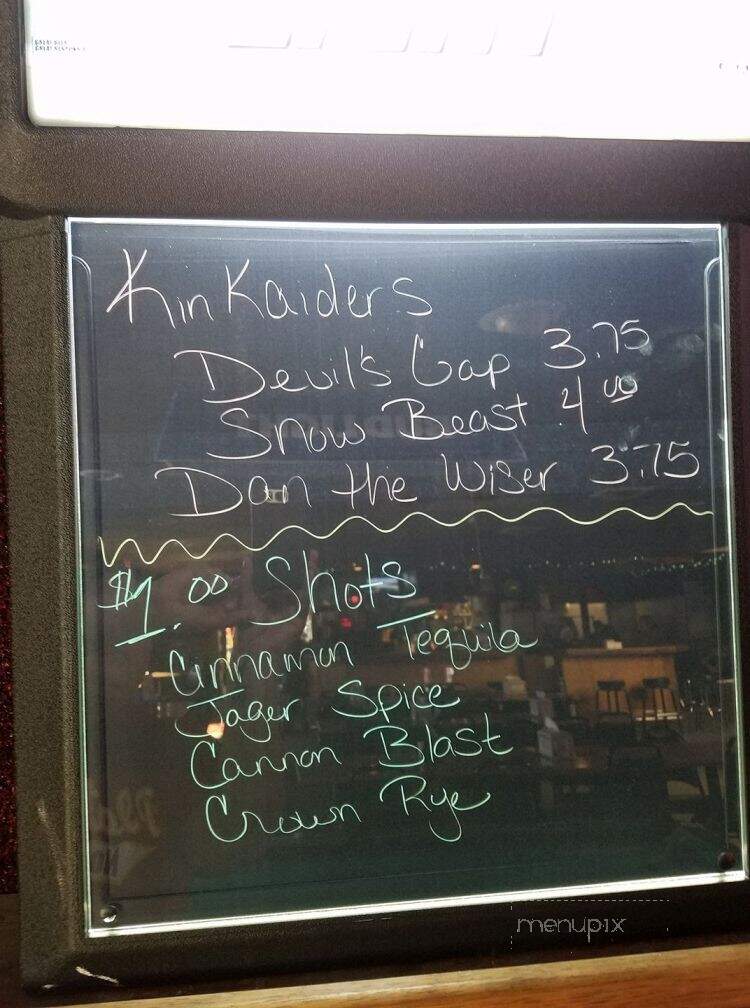 KinKaiders
Devil's Gap 3.75
Snow Beast 4.00
Dan the Wiser 3.75
$1.00 Shots
Cinnamon Tequila
Jager Spice
Cannon Blast
Crown Rye
menupix